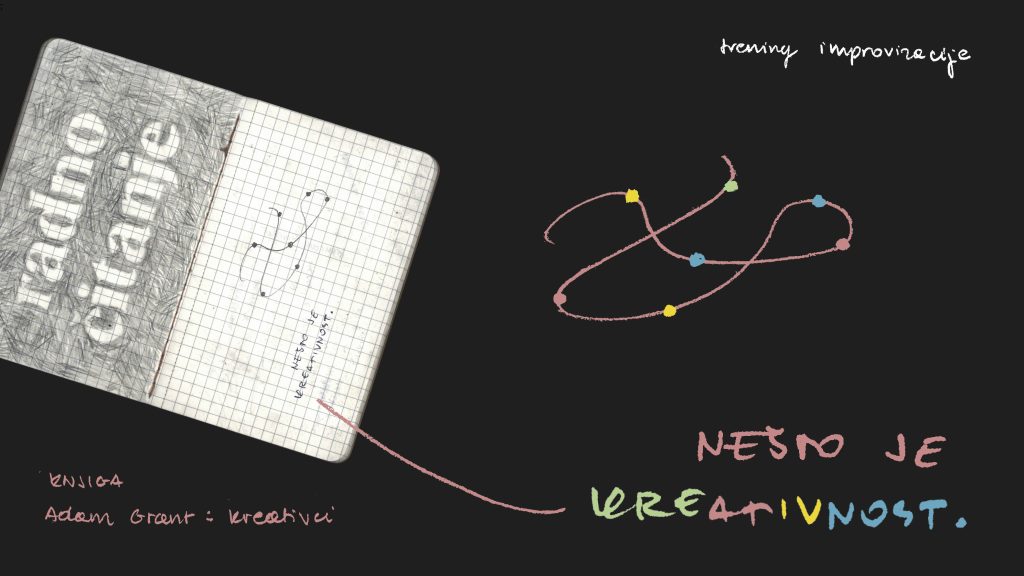 trening improvizacije
radno
čitanje
NEŠTO JE
KREATIVNOST.
NEŠTO JE
KREATIVNOST.
KNJIGA
Adam Grant: kreativci